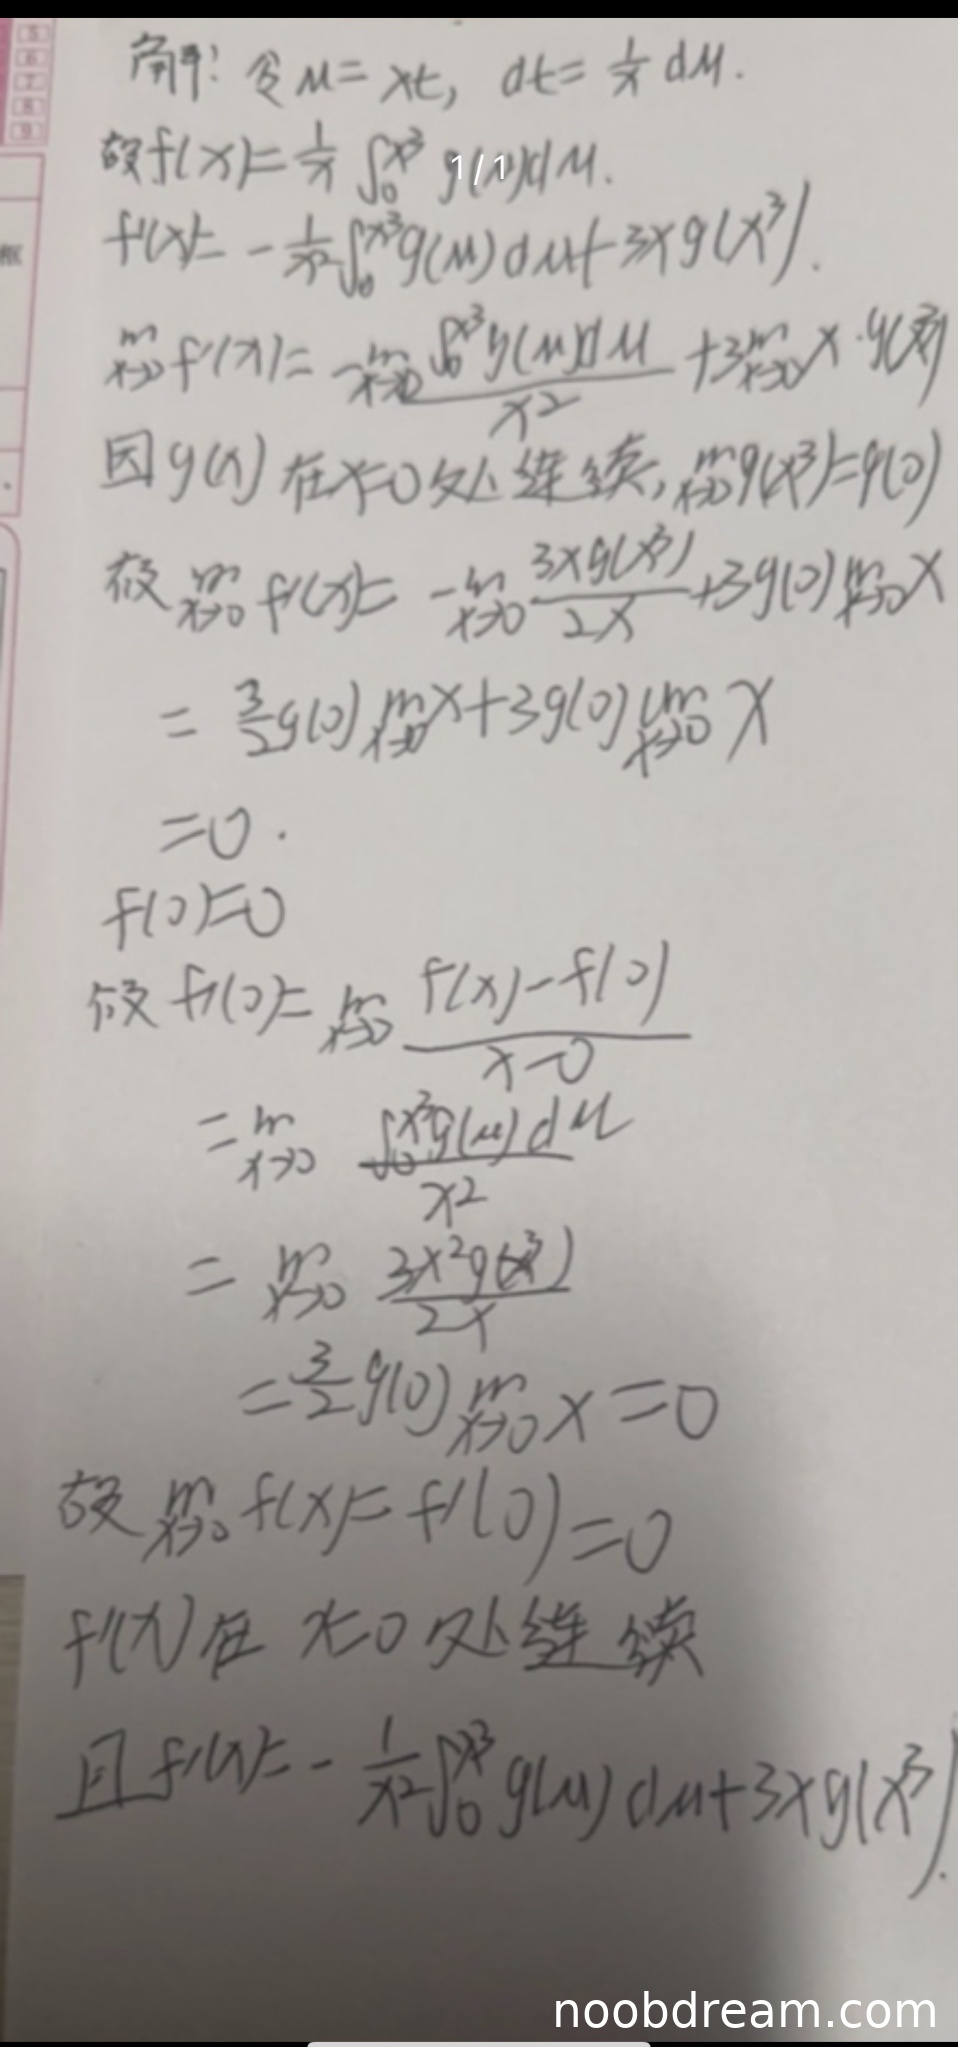 5
6
7
8
9
解：令u=xt，dt=1/x du.
故f(x)=1/x ∫₀^{x³} g(u)du.
1/1
f'(x)=-1/x² ∫₀^{x³} g(u)du+3xg(x³).
lim_{x→0} f'(x)=-lim_{x→0} ∫₀^{x³} g(u)du / x² +3lim_{x→0} x·g(x³)
因g(x)在x=0处连续，lim_{x→0} g(x³)=g(0)
故lim_{x→0} f'(x)=-lim_{x→0} 3xg(x³) / 2x +3g(0)lim_{x→0} x
=3/2 g(0)lim_{x→0} x+3g(0)lim_{x→0} x
=0.
f(0)=0
故f'(0)=lim_{x→0} f(x)-f(0) / x-0
=lim_{x→0} ∫₀^{x³} g(u)du / x²
=lim_{x→0} 3x²g(x³) / 2x
=3/2 g(0)lim_{x→0} x=0
故lim_{x→0} f'(x)=f'(0)=0
f'(x)在x=0处连续
且f'(x)=-1/x² ∫₀^{x³} g(u)du+3xg(x³).
noobdream.com